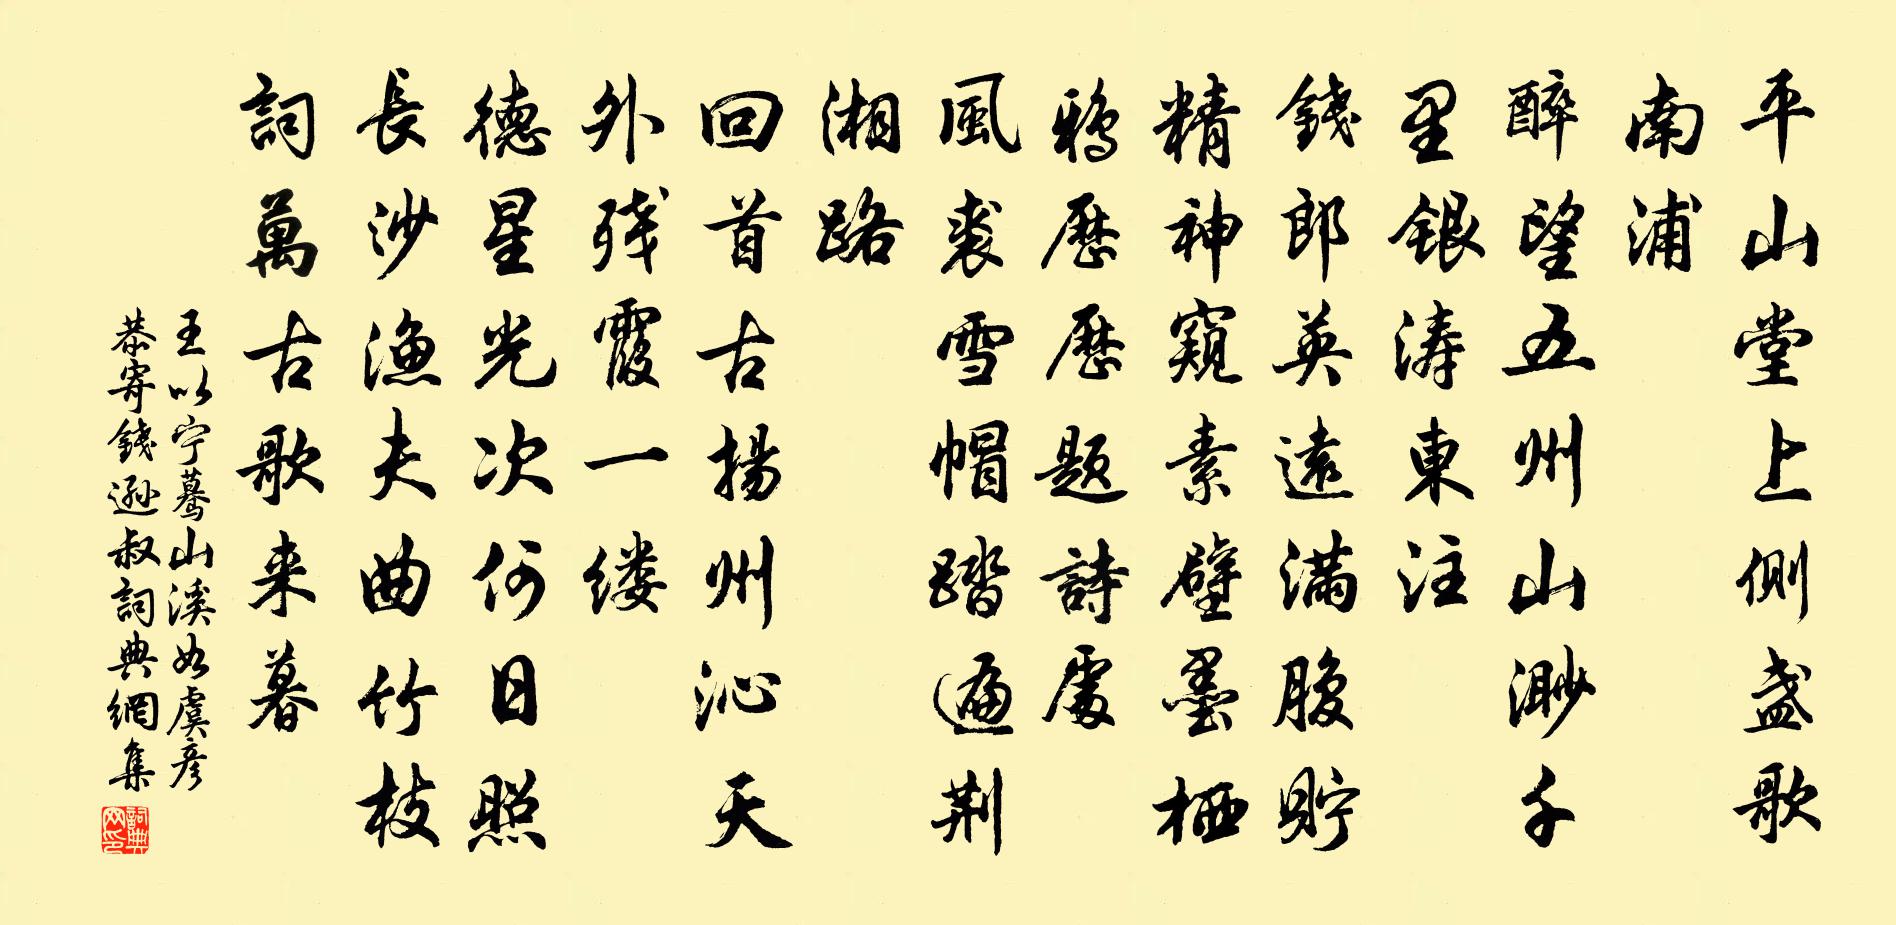 平山堂上側盏歌
南浦
醉望五州山渺千
里銀涛東注
錢郎英遠满腹貯
精神窺素壁墨栖
鴉歷歷題詩處
風裘雪帽踏遍荆
湘路
回首古揚州沁天
外残霞一缕
德星光次何日照
長沙漁夫曲竹枝
詞萬古歌来暮
王以宁驀山溪如虞彦
恭寄錢遜叔詞典網集
詞典網印